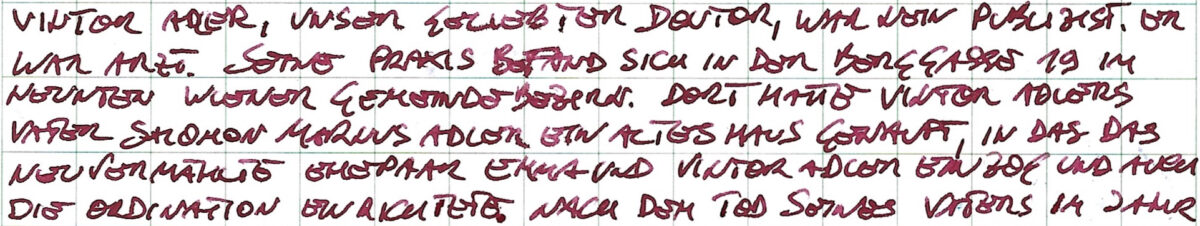 VIKTOR ADLER, UNSER GELIEBTER DOKTOR, WAR KEIN PUBLIZIST. ER
WAR ARZT. SEINE PRAXIS BEFAND SICH IN DER BERGGASSE 19 IM
NEUNTEN WIENER GEMEINDEBEZIRK. DORT HATTE VIKTOR ADLERS
VATER SALOMON MARKUS ADLER EIN ALTES HAUS GEKAUFT, IN DAS DAS
NEUVERMÄHLTE EHEPAAR EMMA UND VIKTOR ADLER EINZOG UND AUCH
DIE ORDINATION EINRICHTETE. NACH DEM TOD SEINES VATERS IM JAHR